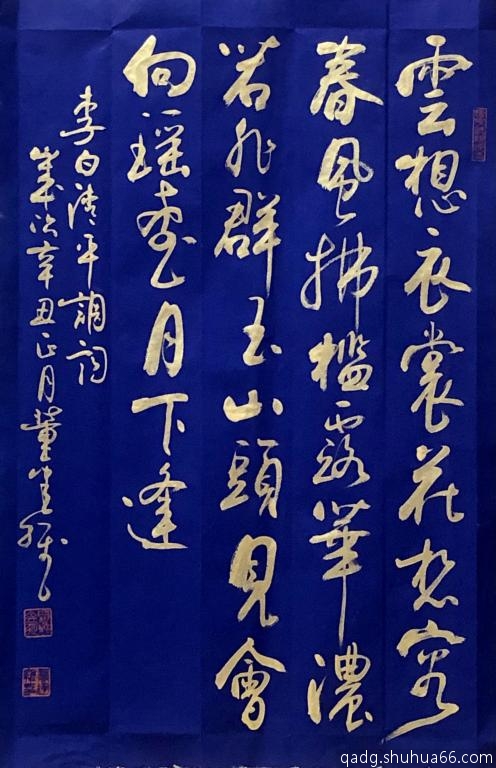 雲想衣裳花想容
春風拂檻露華濃
若非群玉山頭見會
向瑤臺月下逢
李白清平調詞
歲次辛丑正月董
qadg.shuhua66.com